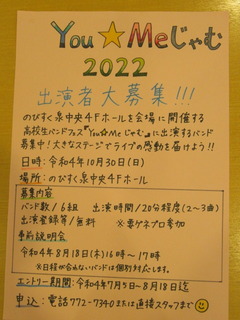 You☆Meじゃむ
2022
出演者大募集!!!
のびすく泉中央4Fホールを会場に開催する
高校生バンドフェス『You☆Meじゃむ』に出演するバンド
募集中!大きなステージでライブの感動を届けよう!!
日時:令和4年10月30日(日)
場所:のびすく泉中央4Fホール
募集内容
バンド数/6組 出演時間/20分程度(2~3曲)
出演登録等/無料 ※要ゲネプロ参加
事前説明会
令和4年8月18日(木)16時~17時
※日程が合わないバンドは個別対応します。
エントリー期間:令和4年7月5日~8月18日迄
申込:電話772-7340または直接スタッフまで